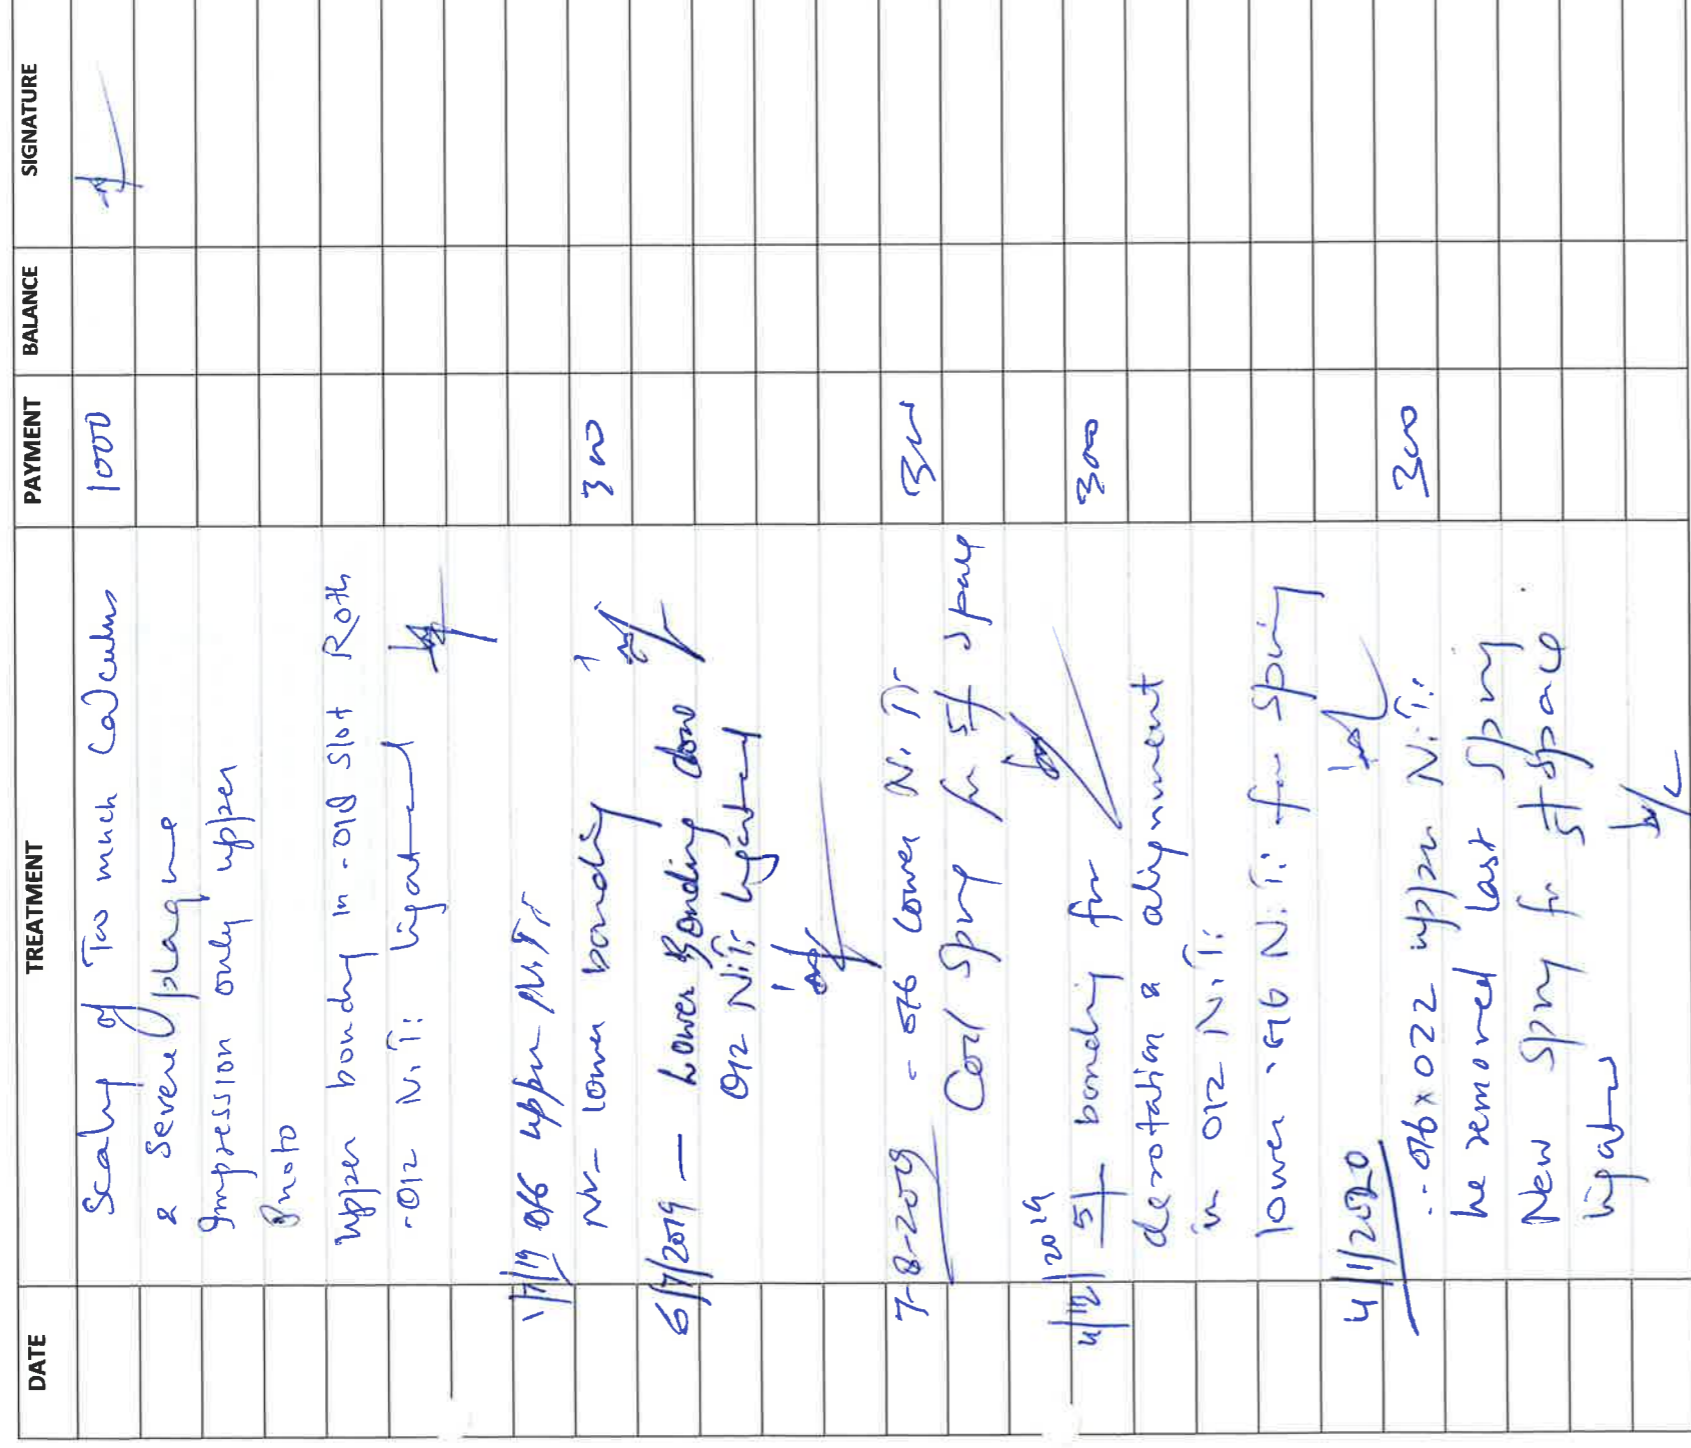 DATE TREATMENT PAYMENT BALANCE SIGNATURE
Scaling of Too much Calculus 1000
& severe plaque
Impression only upper
Photo
upper bonding in .018 slot Roth
.012 N.T: ligated
1/7/19 016 upper Ni.Ti
Nx- lower bonding 300
6/7/2019 — Lower Bonding done
012 NiTi ligated
7-8-2019 - 016 lower Ni Ti 300
Coil spring for 5/ space
4/12/2019 5/ bonding for 3000
derotation & alignment
in 012 N.T:
lower .016 N.T: for spring
4/1/2020
.016x022 upper N.T: 300
he removed last spring
New spring for 5/ space.
ligated